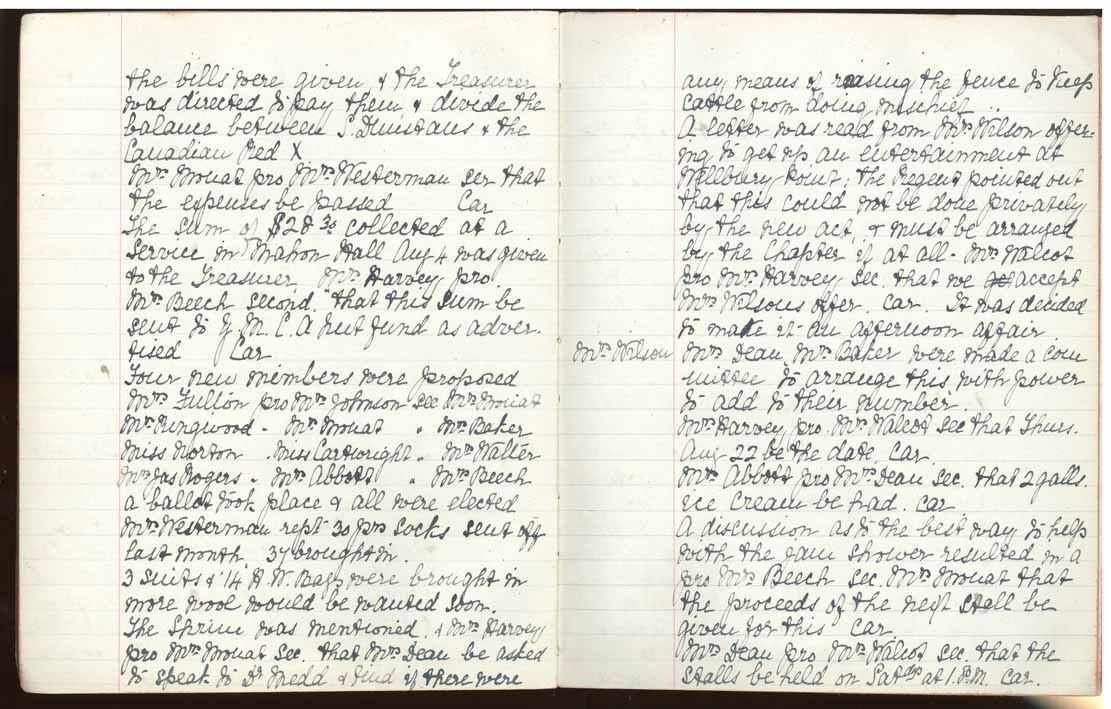 the bills were given & the Treasurer
was directed to pay them & divide the
balance between S. Dunstans & the
Canadian Red X
Mrs Mouat pro Mrs Westerman sec that
the expenses be passed Car
The sum of $28 30 collected at a
Service in Mahon Hall Aug 4 was given
to the Treasurer Mrs Harvey pro.
Mrs Beech second. that this sum be
sent to Y. M. C. A hut fund as adver-
tised Car
Four new members were proposed
Mrs Fulton pro Mrs Johnson sec Mrs Mouat
Mrs Ringwood - Mrs Mouat " Mrs Baker
Miss Norton . Miss Cartwright . Mrs Walter
Mrs Jas Rogers . Mrs Abbott " Mrs Beech
a ballot took place & all were elected
Mrs Westerman rept 30 prs Socks sent off
last month, 37 brought in.
3 suits & 14 H. W. Bags were brought in
more wool would be wanted soon.
The Shrine was mentioned & Mrs Harvey
pro Mrs Mouat Sec. that Mrs Dean be asked
to speak to Dr & find if there were
any means of raising the fence to keep
cattle from doing mischief
A letter was read from Mrs Wilson offer-
ing to get up an entertainment at
Point; the Regent pointed out
that this could not be done privately
by the new act, & must be arranged
by the Chapter if at all - Mrs Walcot
pro Mrs Harvey sec. that we accept
Mrs Wilsons offer. Car. It was decided
to make it an afternoon affair
Mrs Wilson Mrs Dean, Mrs Baker were made a com
mittee to arrange this with power
to add to their number.
Mrs Harvey pro. Mrs Walcot sec that Thurs.
Aug 22 be the date. Car.
Mrs Abbott pro Mrs Dean sec. that 2 galls.
ice cream be had. Car.
A discussion as to the best way to help
with the jam shower resulted in a
pro Mrs Beech sec. Mrs Mouat that
the proceeds of the next stall be
given for this Car.
Mrs Dean pro Mrs Walcot sec. that the
stalls be held on Satdys at 1. P.M. Car.